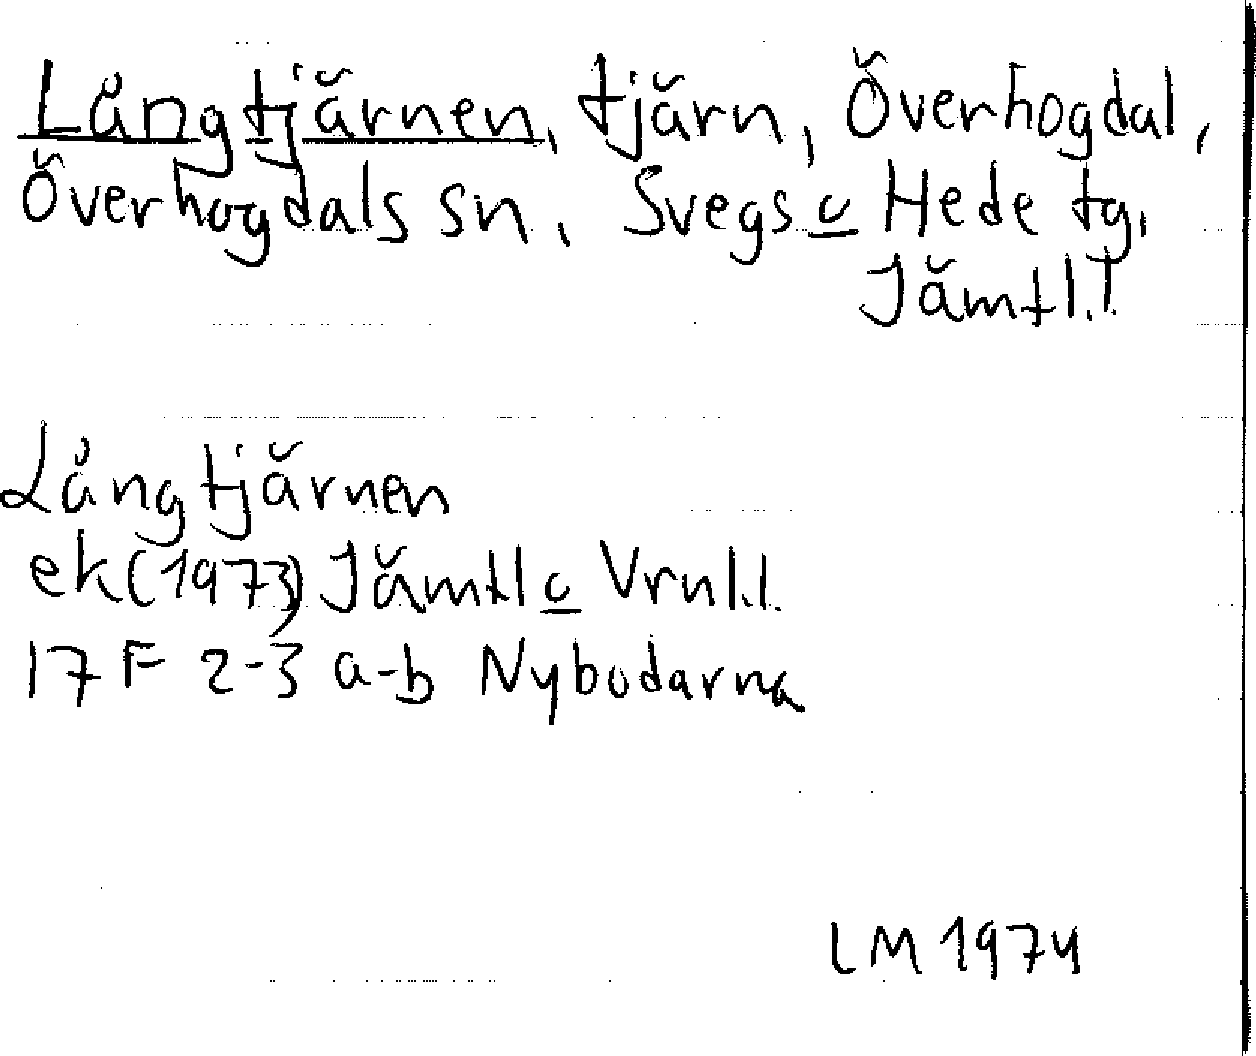 Långtjärnen, tjärn, Överhogdal,
Överhogdals sn, Svegs o Hede tg,
Jämtl.l
Långtjärnen
ek (1973) Jämtl o Vrnl.l.
17 F 2-3 a-b Nybodarna
LM 1974